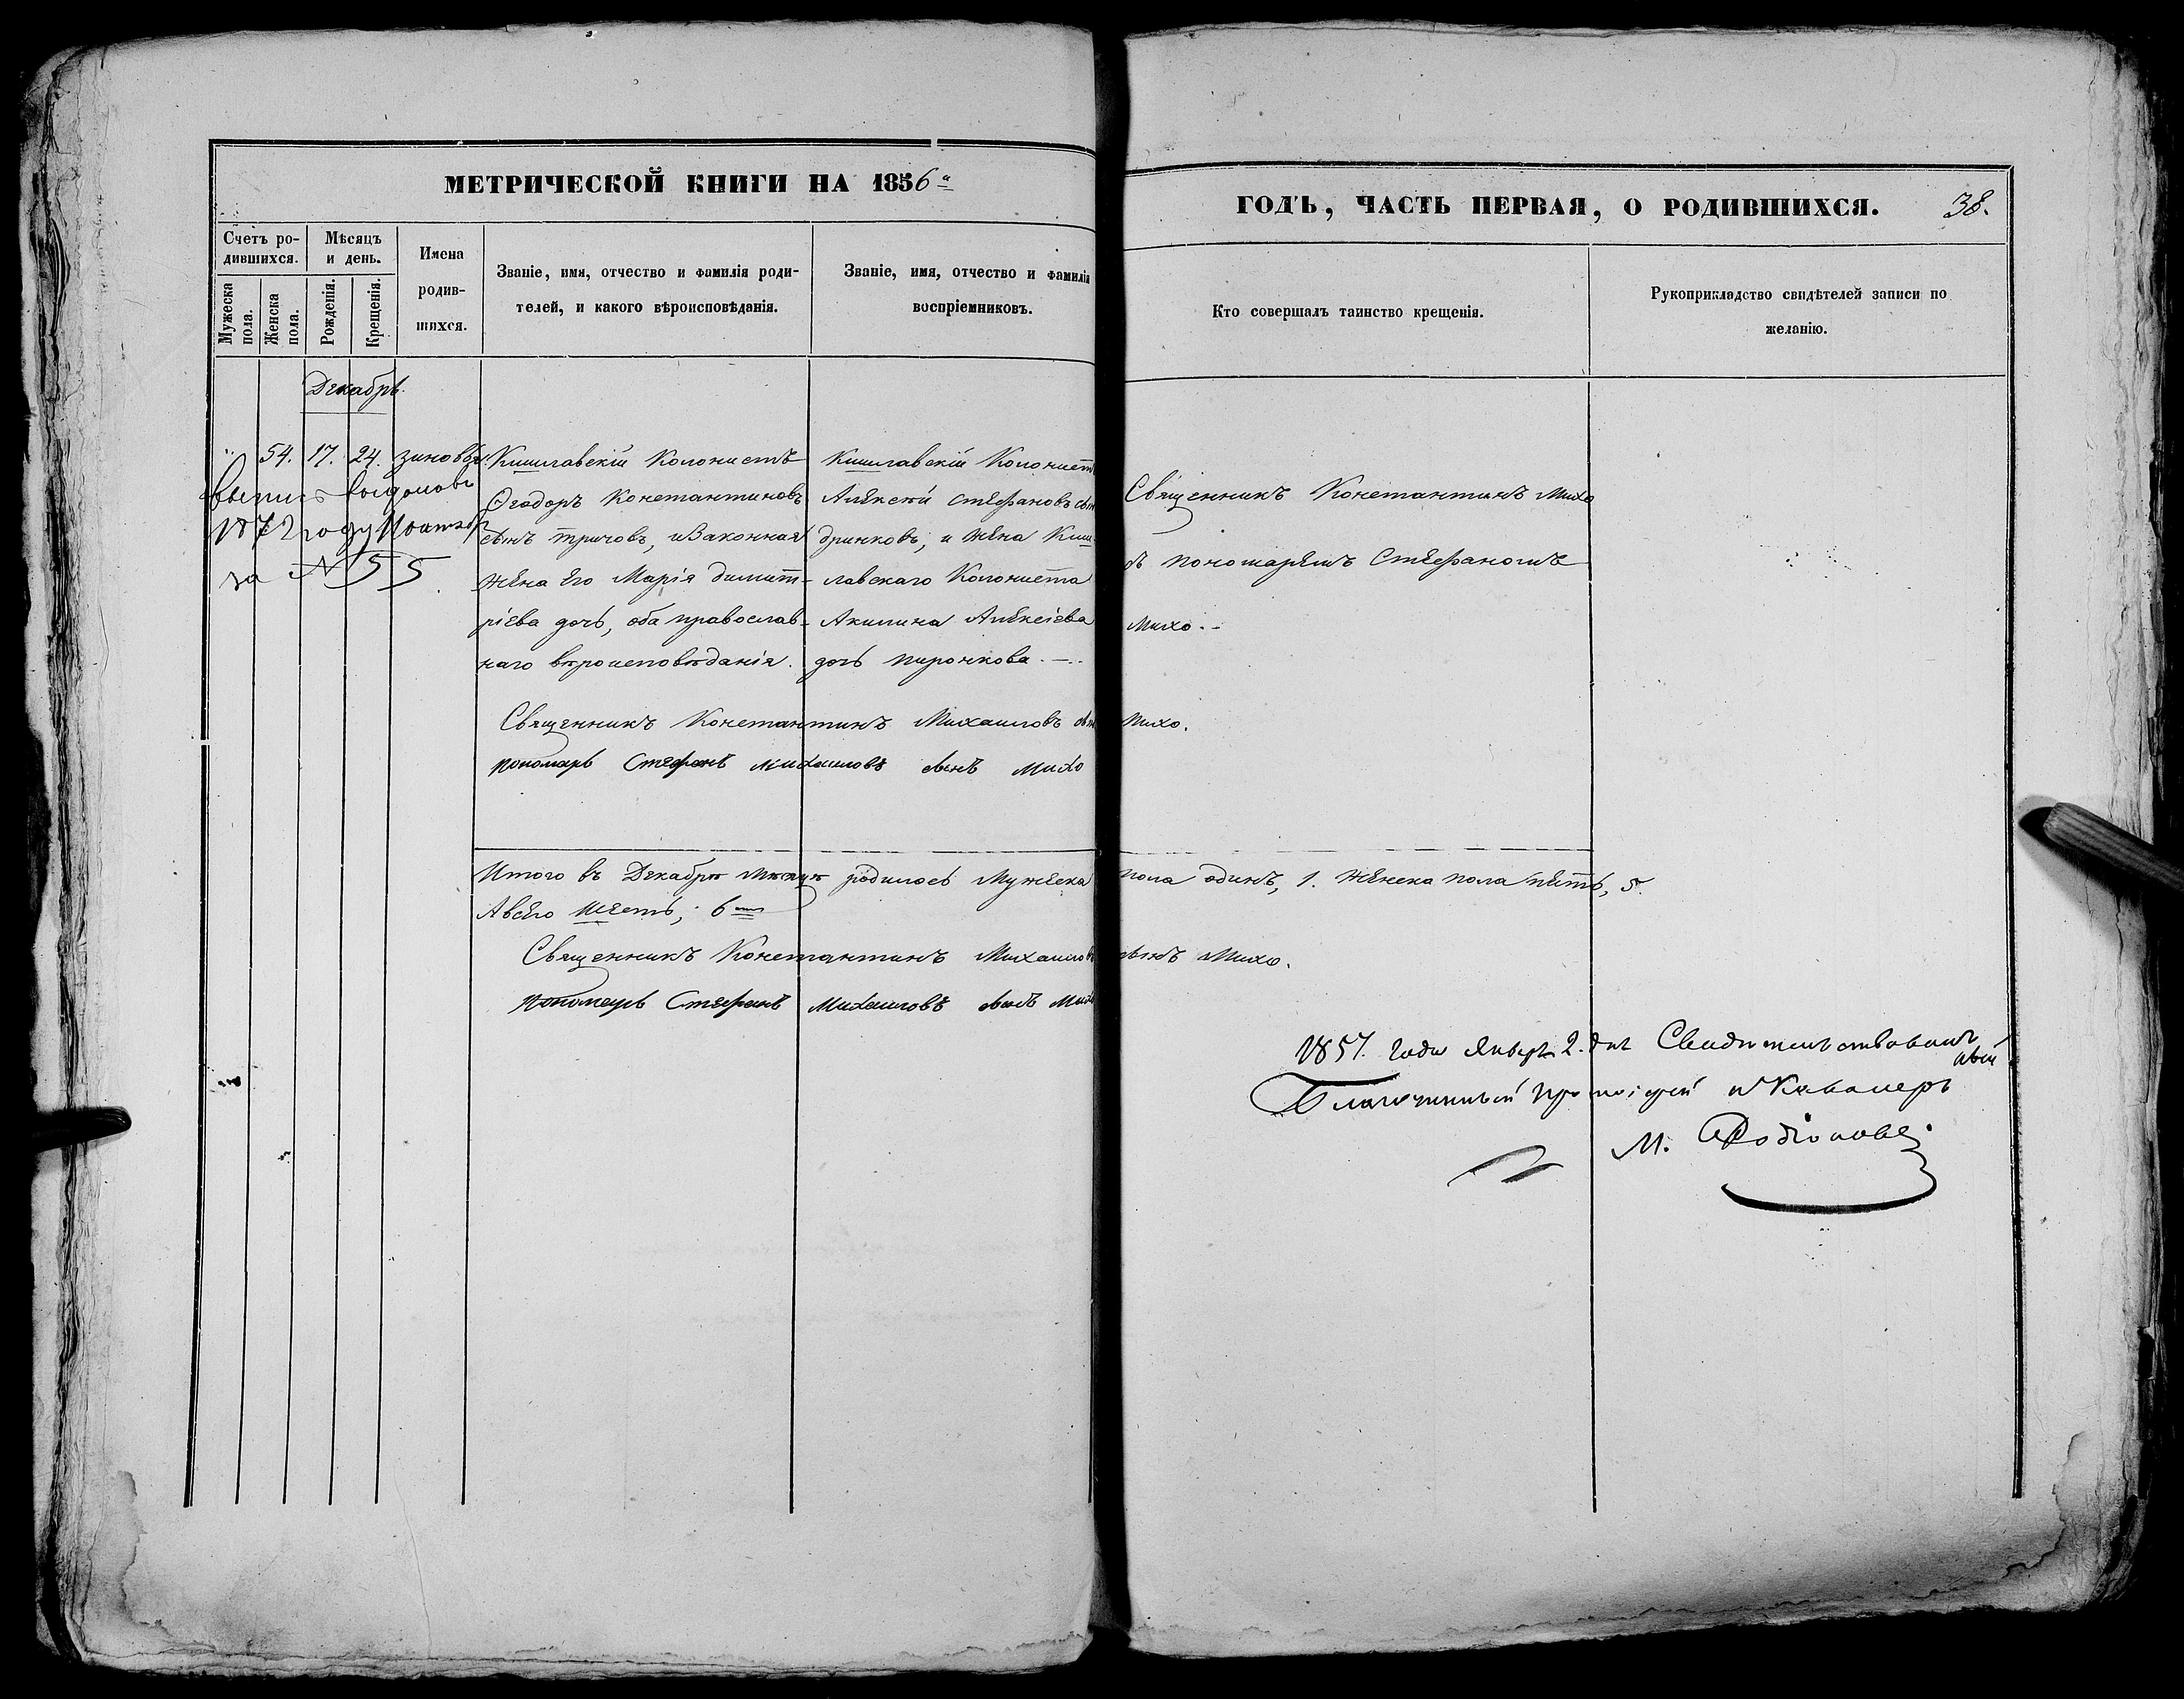 МЕТРИЧЕСКОЙ КНИГИ НА 1856й
ГОДЪ, ЧАСТЬ ПЕРВАЯ, О РОДИВШИХСЯ. 38.
Счетъ ро-
дившихся.
Мужеска
пола.
Женска
пола.
Мѣсяцъ
и день.
Рожденія.
Крещенія.
Имена
родив-
шихся.
Званіе, имя, отчество и фамилія роди-
телей, и какого вѣроисповѣданія.
Званіе, имя, отчество и фамилія
воспріемниковъ.
Кто совершалъ таинство крещенія.
Рукоприкладство свидѣтелей записи по
желанію.
Декабрь.
" 54. 17. 24.
1872 году
за № 55
Кишлавскій Колонистъ
Ѳеодоръ Константиновъ
сынъ тричовъ, и Законная
жена Его Марія димит-
ріева дочь, оба православ-
наго вѣроисповѣданія.
Кишлавскій Колонистъ
Алексѣй Стефановъ сынъ
дринковъ, и жена Киш-
лавскаго Колониста
Акилина Алексіева
дочь пирочкова.
Священникъ Константинъ Михо
съ пономаремъ Стефаномъ
Михо.
Священникъ Константинъ Михаиловъ сынъ Михо.
пономарь Стефанъ Михаиловъ сынъ Михо
Итого въ Декабрѣ Мѣсяцѣ родилось Мужеска пола одинъ, 1. женска пола пять, 5.
А всего шесть, 6
Священникъ Константинъ Михаиловъ сынъ Михо.
пономарь Стефанъ Михаиловъ сынъ Михо
1857. года Января 2. дня Свидѣтельствовалъ
Благочинный Протоіерей и Кавалеръ
М. Родіоновъ